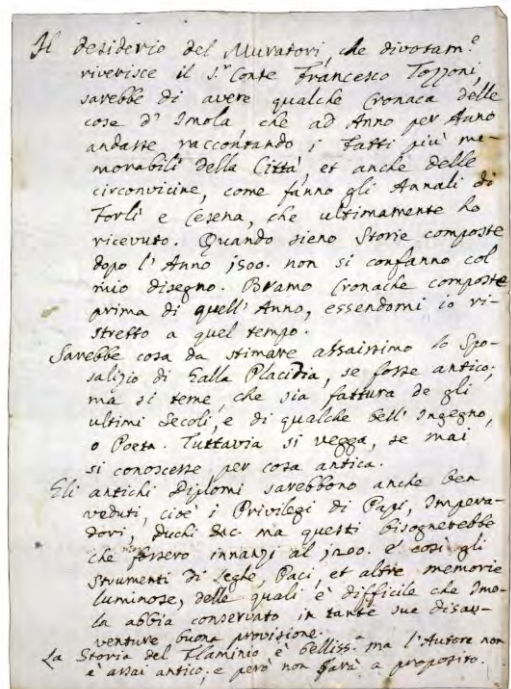 Il desiderio del Muratori, che divotam.e
riverisce il S.r Conte Francesco Tozzoni,
sarebbe di avere qualche Cronaca delle
cose d' Imola, che ad Anno per Anno
andasse raccontando i Fatti più me-
morabili della Città, et anche delle
circonvicine, come fanno gli Annali di
Forlì e Cesena, che ultimamente ho
ricevuto. Quando sieno Storie composte
dopo l' Anno 1500. non si confanno col
mio disegno. Bramo Cronache composte
prima di quell' Anno, essendomi io ri-
stretto a quel tempo.
Sarebbe cosa da stimare assaissimo lo Spo-
salizio di Galla Placidia, se fosse antico;
ma si teme, che sia fattura de gli
ultimi Secoli, e di qualche bell' Ingegno,
o Poeta. Tuttavia si vegga, se mai
si conoscesse per cosa antica.
Gli antichi Diplomi sarebbono anche ben
veduti, cioè i Privilegi di Papi, Impera-
dori, Duchi &c. ma questi bisognerebbe
che fossero innanzi al 1200. e così gli
Strumenti di Leghe, Paci, et altre memorie
luminose, delle quali è difficile che Imo-
la abbia conservato in tante sue disav-
venture buona provisione.
La Storia del Flaminio è belliss.a ma l'Autore non
è assai antico; e però non farà a proposito.